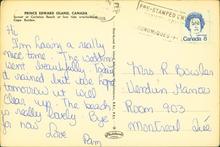 PRINCE EDWARD ISLAND, CANADA
Sunset at Cavendish Beach at low tide overlooking
Cape
Hi
I'm having a really
nice time. The wedding
went beautifully. Today
it rained but we hope
tomorrow it will
clear up. The beach
is really lovely. Bye
for now
Love
Pam
CANADA 8
Mrs R Bowles
Manor
Room 903
Montreal